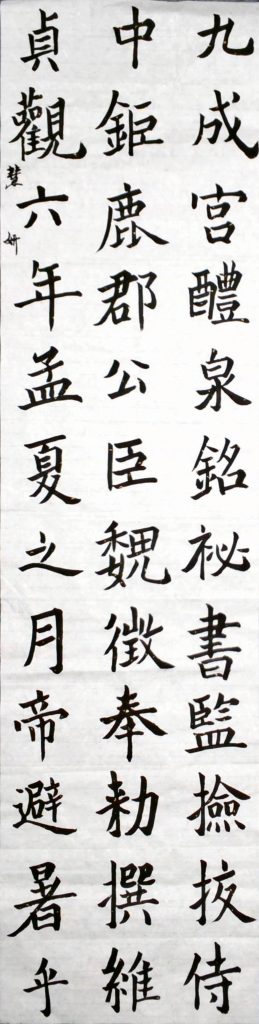 九成宮醴泉銘祕書監撿挍侍
中鉅鹿郡公臣魏徵奉勑撰維
貞觀六年孟夏之月帝避暑乎
慧妍